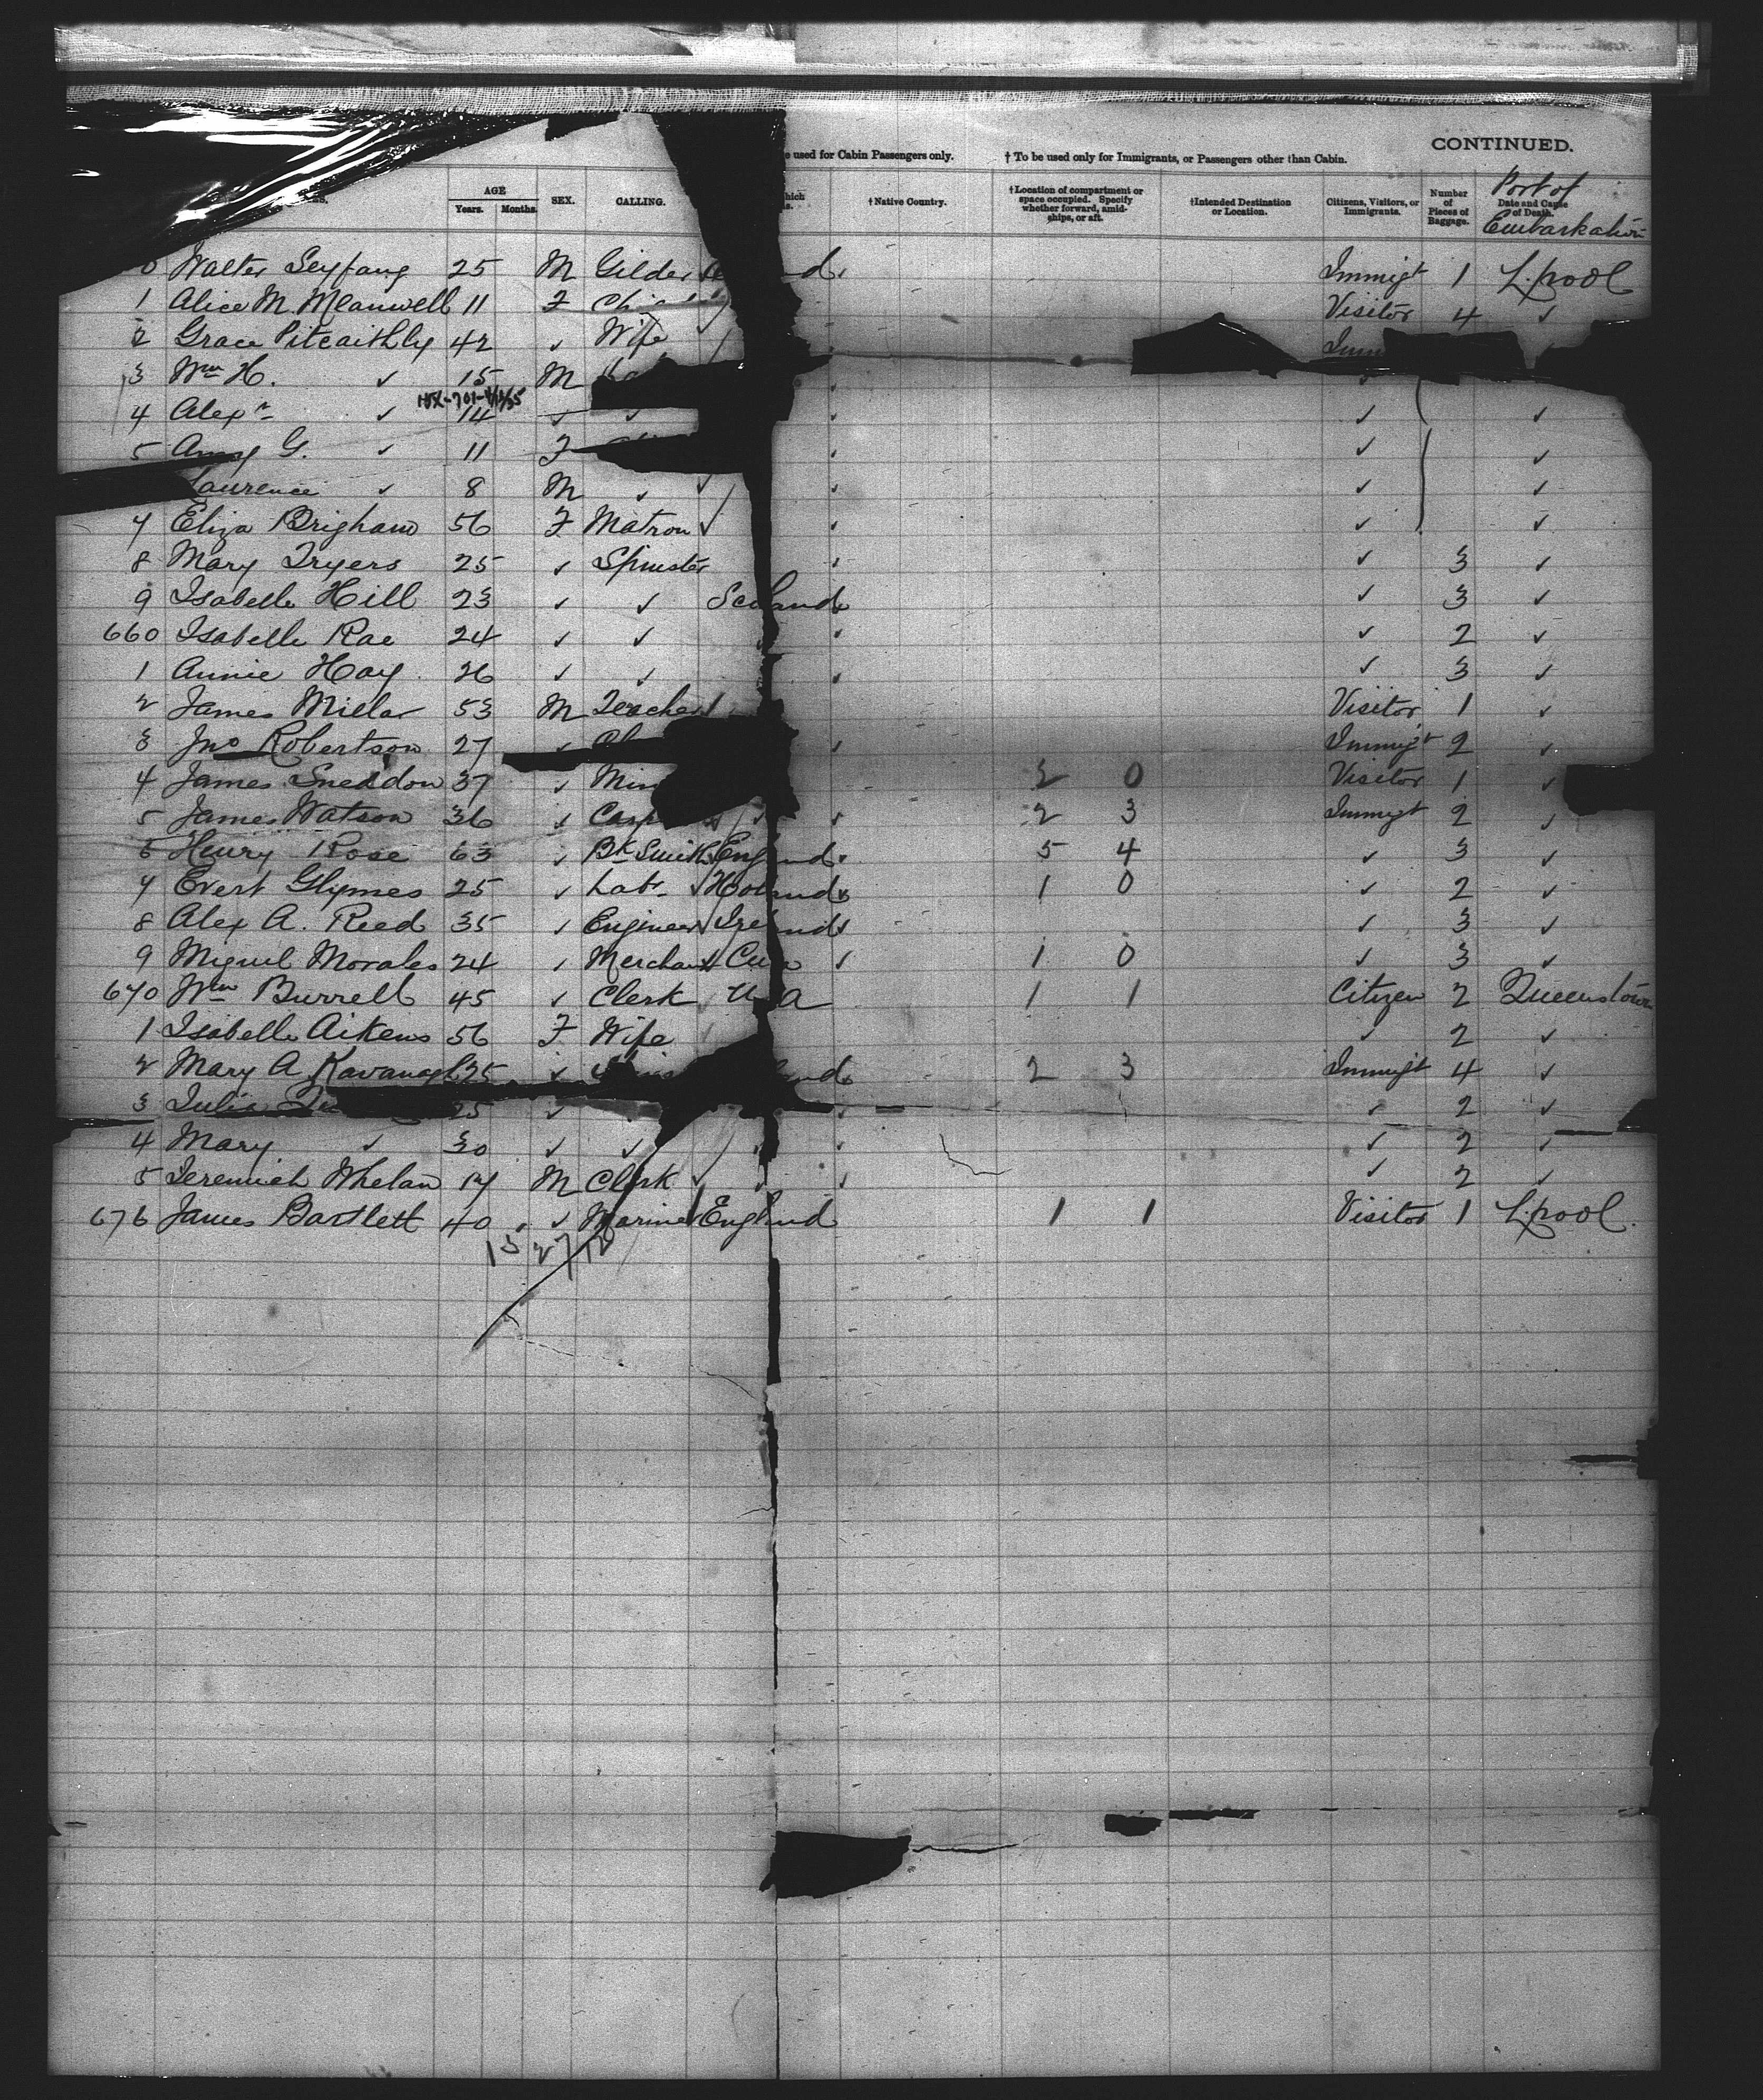 e used for Cabin Passengers only. † To be used only for Immigrants, or Passengers other than Cabin. CONTINUED.
AGE Years. Months. SEX. CALLING. †Native Country. †Location of compartment or space occupied. Specify whether forward, amidships, or aft. †Intended Destination or Location. Citizens, Visitors, or Immigrants. Number of Pieces of Baggage. Date and Cause of Death. Port of Embarkation
0 Walter Seyfang 25 M Gilder nd Immigt 1 L.pool
1 Alice M. Meanwell 11 F Visitor 4 ✓
2 Grace Pitcaithly 42 ✓ Wife Imm
3 Wm H. ✓ 15 M
4 Alexr ✓ 14 ✓ ✓ ✓ ✓
5 Amy G. ✓ 11 F ✓ ✓
Laurence ✓ 8 M ✓ ✓ ✓
7 Eliza Brigham 56 F Matron ✓ ✓
8 Mary Tryers 25 ✓ Spinster ✓ 3 ✓
9 Isabella Hill 23 ✓ ✓ Scotland ✓ 3 ✓
660 Isabella Rae 24 ✓ ✓ ✓ 2 ✓
1 Annie Hay 26 ✓ ✓ ✓ 3 ✓
2 James Millar 53 M Teacher Visitor 1 ✓
3 Jno Robertson 27 ✓ Immigt 2 ✓
4 James Sneddon 37 ✓ Min 2 0 Visitor 1 ✓
5 James Watson 36 ✓ Carp ✓ 2 3 Immigt 2 ✓
6 Henry Rose 63 ✓ Bk Smith England 5 4 ✓ 3 ✓
7 Evert Glymes 25 ✓ Labr Holland 1 0 ✓ 2 ✓
8 Alex A. Reed 35 ✓ Engineer Ireland ✓ 3 ✓
9 Miguel Morales 24 ✓ Merchant Cuba ✓ 1 0 ✓ 3 ✓
670 Wm Burrell 45 ✓ Clerk USA 1 1 Citizen 2 Queenstown
1 Isabella Aikens 56 F Wife ✓ 2 ✓
2 Mary A Kavanagh 25 ✓ nd 2 3 Immigt 4 ✓
3 Julia 25 ✓ ✓ 2 ✓
4 Mary ✓ 30 ✓ ✓ ✓ 2 ✓
5 Jeremiah Whelan 17 M Clerk ✓ ✓ 2 ✓
676 James Bartlett 40 ✓ Mariner England 1 1 Visitor 1 L.pool.